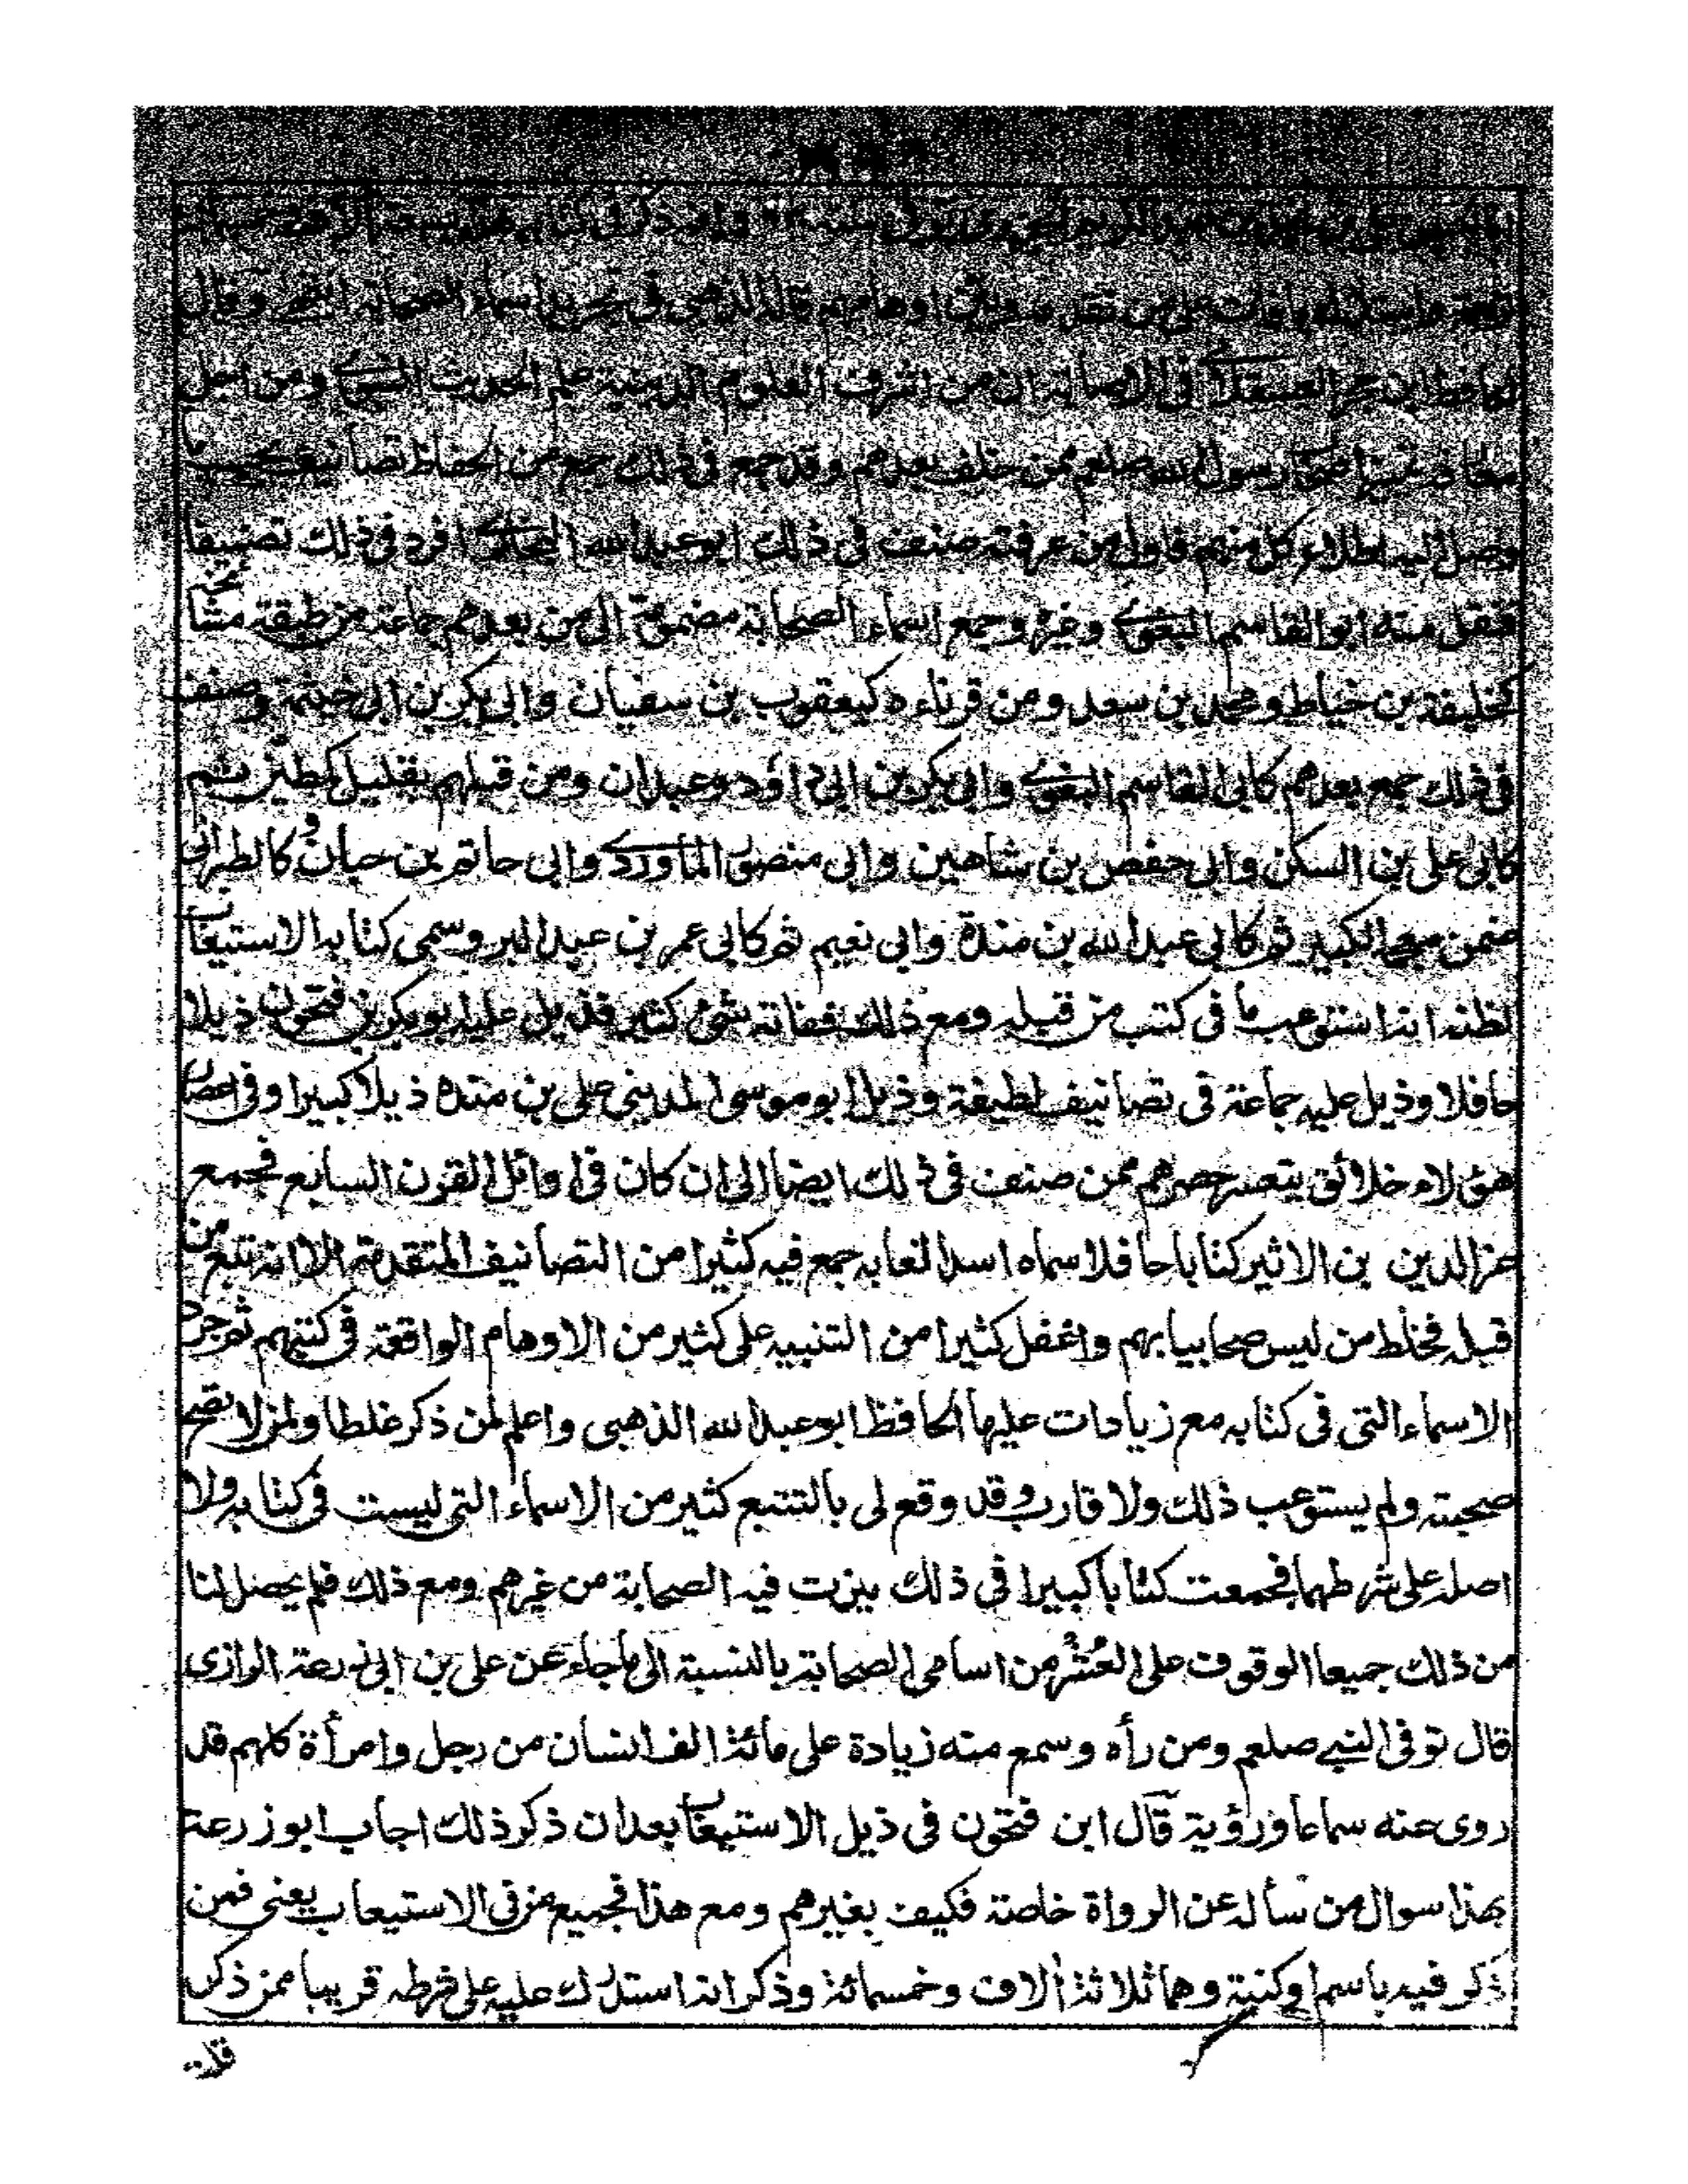 وقال
الحافظ ابن حجر العسقلانى فى الاصابة ان من اشرف العلوم الدينية علم الحديث النبوى ومن اجل
معارفه تمييز اصحاب رسول الله صلعم ممن خلف بعدهم وقد جمع فى ذلك جمع من الحفاظ تصانيف بحسب ما
وصل اليه اطلاع كل منهم فاول من عرفته صنف فى ذلك ابو عبد الله البخارى افرد فى ذلك تصنيفا
فنقل منه ابو القاسم البغوى وغيره وجمع اسماء الصحابة مضمومة الى من بعدهم جماعة من طبقة مشايخه
كخليفة بن خياط ومحمد بن سعد ومن قرناءه كيعقوب بن سفيان وابى بكر بن ابى خيثمة وصنف
فى ذلك جمع بعدهم كابى القاسم البغوى وابى بكر بن ابى داؤد وعبدان ومن قبلهم بقليل كمطين ثم
كابى على بن السكن وابى حفص بن شاهين وابى منصور الماوردى وابى حاتم بن حبان وكالطبرانى
ضمن معجمه الكبير ثم كابى عبد الله بن مندة وابى نعيم ثم كابى عمر بن عبد البر وسمى كتابه الاستيعاب
لظنه انه استوعب ما فى كتب من قبله ومع ذلك ففاته شئ كثير فذيل عليه ابو بكر بن فتحون ذيلا
حافلا وذيل عليه جماعة فى تصانيف لطيفة وذيل ابو موسى المدينى على بن مندة ذيلا كبيرا وفى اعصار
هؤلاء خلائق يتعسر حصرهم ممن صنف فى ذلك ايضا الى ان كان فى اوائل القرن السابع فجمع
عز الدين بن الاثير كتابا حافلا سماه اسد الغابه جمع فيه كثيرا من التصانيف المتقدمة الا انه تتبع من
قبله فخلط من ليس صحابيا بهم واغفل كثيرا من التنبيه على كثير من الاوهام الواقعة فى كتبهم ثم جرد
الاسماء التى فى كتابه مع زيادات عليها الحافظ ابو عبد الله الذهبى واعلم لمن ذكر غلطا ولمن لا تصح
صحبته ولم يستوعب ذلك ولا قارب وقد وقع لى بالتتبع كثير من الاسماء التى ليست فى كتابه ولا
اصله على شرطهما فجمعت كتابا كبيرا فى ذلك ميزت فيه الصحابة من غيرهم ومع ذلك فلم يحصل لنا
من ذلك جميعا الوقوف على العشر من اسامى الصحابة بالنسبة الى ما جاء عن على بن ابى زرعة الرازى
قال توفى النبى صلعم ومن رأه وسمع منه زيادة على مائة الف انسان من رجل وامرأة كلهم قد
روى عنه سماعا ورؤية قال ابن فتحون فى ذيل الاستيعاب بعد ان ذكر ذلك اجاب ابو زرعة
بهذا سوال من سأله عن الرواة خاصة فكيف بغيرهم ومع هذا فجميع من فى الاستيعاب يعنى فمن
ذكر فيه باسم او كنية وهما ثلاثة ألاف وخمسمائة وذكر انه استدرك عليه على شرطه قريبا ممن ذكر